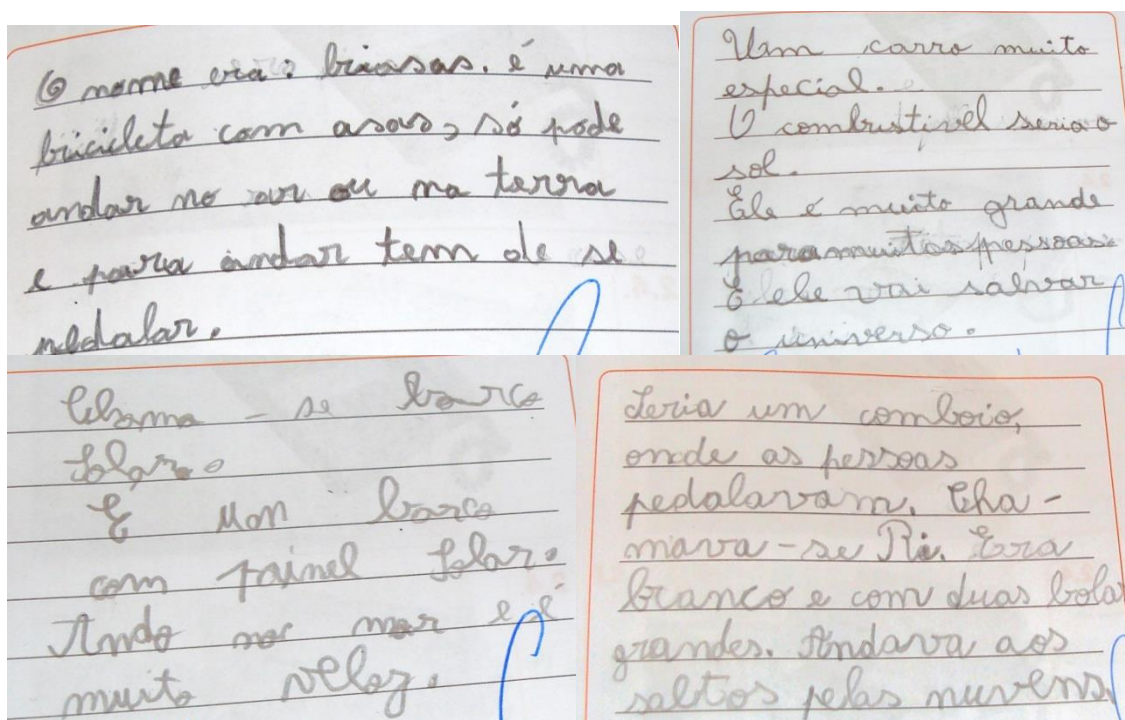 O nome era: briasas. é uma
bricicleta com asas, só pode
andar no ar ou na terra
e para andar tem de se
pedalar.
Um carro muito
especial.
O combustivél seria o
sol.
Ele é muito grande
para muitas pessoas.
E ele vai salvar
o universo.
Chama-se barco
Solar.
É um barco
com painel Solar.
Anda no mar e é
muito veloz.
Seria um comboio,
onde as pessoas
pedalavam. Cha-
mava-se Ri. Era
branco e com duas bolas
grandes. Andava aos
saltos pelas nuvens.